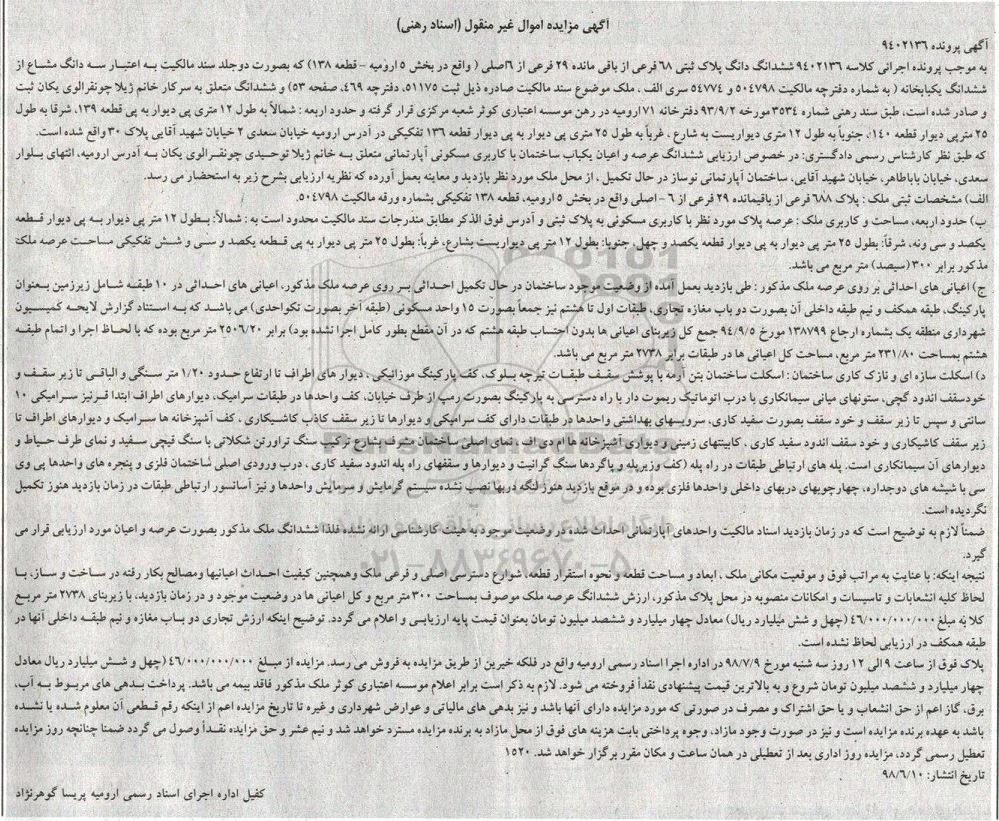 آگهی مزایده اموال غیر منقول (اسناد رهنی)
آگهی پرونده ۹۴۰۲۱۳۶
به موجب پرونده اجرائی کلاسه ۹۴۰۲۱۳۶ ششدانگ دانگ پلاک ثبتی ۶۸ فرعی از باقی مانده ۲۹ فرعی از ۶اصلی ( واقع در بخش ۵ ارومیه – قطعه ۱۳۸) که بصورت دوجلد سند مالکیت به اعتبار سه دانگ مشاع از
ششدانگ یکبابخانه ( به شماره دفترچه مالکیت ۵۰۴۷۹۸ و ۵۴۷۷۴ سری الف ، ملک موضوع سند مالکیت صادره ذیل ثبت ۵۱۱۷۵، دفترچه ۴۶۹، صفحه ۵۳) و ششدانگ متعلق به سرکار خانم ژیلا چونقرالوی یکان ثبت
و صادر شده است، طبق سند رهنی شماره ۳۵۳۴مورخه ۹۳/۹/۲ دفترخانه ۷۱ارومیه در رهن موسسه اعتباری کوثر شعبه مرکزی قرار گرفته و حدود اربعه : شمالاً به طول ۱۲ متری پی دیوار به پی قطعه ۱۳۹، شرقا به طول
۲۵ مترپی دیوار قطعه ۱۴۰، جنوباً به طول ۱۲ متری دیواریست به شارع ، غرباً به طول ۲۵ متری پی دیوار به پی دیوار قطعه ۱۳۶ تفکیکی در آدرس ارومیه خیابان سعدی ۲ خیابان شهید آقایی پلاک ۳۰ واقع شده است.
که طبق نظر کارشناس رسمی دادگستری: در خصوص ارزیابی ششدانگ عرصه و اعیان یکباب ساختمان با کاربری مسکونی آپارتمانی متعلق به خانم ژیلا توحیدی چونقرالوی یکان به آدرس ارومیه، انتهای بلوار
سعدی، خیابان باباطاهر، خیابان شهید آقایی، ساختمان آپارتمانی نوساز در حال تکمیل ، از محل ملک مورد نظر بازدید و معاینه بعمل آورده که نظریه ارزیابی بشرح زیر به استحضار می رسد.
الف) مشخصات ثبتی ملک : پلاک ۶۸۸ فرعی از باقیمانده ۲۹ فرعی از ۶ – اصلی واقع در بخش ۵ ارومیه، قطعه ۱۳۸ تفکیکی بشماره ورقه مالکیت ۵۰۴۷۹۸.
ب) حدود اربعه، مساحت و کاربری ملک : عرصه پلاک مورد نظر با کاربری مسکونی به پلاک ثبتی و آدرس فوق الذکر مطابق مندرجات سند مالکیت محدود است به : شمالاً: بطول ۱۲ متر پی دیوار به پی دیوار قطعه
یکصد و سی ونه، شرقاً: بطول ۲۵ متر پی دیوار به پی دیوار قطعه یکصد و چهل، جنوبا: بطول ۱۲ متر پی دیواریست بشارع، غرباً: بطول ۲۵ متر پی دیوار به پی قطعه یکصد و سی و شش تفکیکی مساحت عرصه ملک
مذکور برابر ۳۰۰(سیصد) متر مربع می باشد.
ج) اعیانی های احداثی بر روی عرصه ملک مذکور : طی بازدید بعمل آمده از وضعیت موجود ساختمان در حال تکمیل احداثی بر روی عرصه ملک مذکور، اعیانی های احداثی در ۱۰ طبقه شامل زیرزمین بعنوان
پارکینگ، طبقه همکف و نیم طبقه داخلی آن بصورت دو باب مغازه تجاری، طبقات اول تا هشتم نیز جمعاً بصورت ۱۵ واحد مسکونی (طبقه آخر بصورت تکواحدی) می باشد که به استناد گزارش لایحه کمیسیون
شهرداری منطقه یک بشماره ارجاع ۱۳۸۷۹۹ مورخ ۹۴/۹/۵ جمع کل زیربنای اعیانی ها بدون احتساب طبقه هشتم که در آن مقطع بطور کامل اجرا نشده بود) برابر ۲۵۰۶/۲۰ متر مربع بوده که با لحاظ اجرا و اتمام طبقه
هشتم بمساحت ۲۳۱/۸۰ متر مربع، مساحت کل اعیانی ها در طبقات برابر ۲۷۳۸ متر مربع می باشد.
د) اسکلت سازه ای و نازک کاری ساختمان : اسکلت ساختمان بتن آرمه با پوشش سقف طبقات تیرچه بلوک، کف پارکینگ موزائیکی ، دیوار های اطراف تا ارتفاع حدود ۱/۲۰ متر سنگی و الباقی تا زیر سقف و
خودسقف اندود گچی، ستونهای میانی سیمانکاری با درب اتوماتیک ریموت دار با راه دسترسی به پارکینگ بصورت رمپ از طرف خیابان، کف واحدها در طبقات سرامیک، دیوارهای اطراف ابتدا قرنیز سرامیکی ۱۰
سانتی و سپس تا زیر سقف و خود سقف بصورت سفید کاری، سرویسهای بهداشتی واحدها در طبقات دارای کف سرامیکی و دیوارها تا زیر سقف کاذب کاشیکاری ، کف آشپزخانه ها سرامیک و دیوارهای اطراف تا
زیر سقف کاشیکاری و خود سقف اندود سفید کاری ، کابینتهای زمینی و دیواری آشپزخانه ها ام دی اف ، نمای اصلی ساختمان مشرف بشارع ترکیب سنگ تراورتن شکلاتی با سنگ قیچی سفید و نمای طرف حیاط و
دیوارهای آن سیمانکاری است. پله های ارتباطی طبقات در راه پله (کف وزیرپله و پاگردها سنگ گرانیت و دیوارها و سقفهای راه پله اندود سفید کاری ، درب ورودی اصلی ساختمان فلزی و پنجره های واحدها پی وی
سی با شیشه های دوجداره، چهارچوبهای دربهای داخلی واحدها فلزی بوده و در موقع بازدید هنوز لنگه دربها نصب نشده سیستم گرمایش و سرمایش واحدها و نیز آسانسور ارتباطی طبقات در زمان بازدید هنوز تکمیل
نگردیده است.
ضمناً لازم به توضیح است که در زمان بازدید اسناد مالکیت واحدهای آپارتمانی احداث شده در وضعیت موجود به هیئت کارشناسی ارائه نشده فلذا ششدانگ ملک مذکور بصورت عرصه و اعیان مورد ارزیابی قرار می
گیرد.
نتیجه اینکه: با عنایت به مراتب فوق و موقعیت مکانی ملک ، ابعاد و مساحت قطعه و نحوه استقرار قطعه، شوارع دسترسی اصلی و فرعی ملک وهمچنین کیفیت احداث اعیانیها ومصالح بکار رفته در ساخت و ساز، با
لحاظ کلیه انشعابات و تاسیسات و امکانات منصوبه در محل پلاک مذکور، ارزش ششدانگ عرصه ملک موصوف بمساحت ۳۰۰ متر مربع و کل اعیانی ها در وضعیت موجود و در زمان بازدید، با زیربنای ۲۷۳۸ متر مربع
کلا به مبلغ ۴۶/۰۰۰/۰۰۰/۰۰۰ (چهل و شش میلیارد ریال) معادل چهار میلیارد و ششصد میلیون تومان بعنوان قیمت پایه ارزیابی و اعلام می گردد. توضیح اینکه ارزش تجاری دو باب مغازه و نیم طبقه داخلی آنها در
طبقه همکف در ارزیابی لحاظ نشده است.
پلاک فوق از ساعت ۹ الی ۱۲ روز سه شنبه مورخ ۹۸/۷/۹ در اداره اجرا اسناد رسمی ارومیه واقع در فلکه خیرین از طریق مزایده به فروش می رسد. مزایده از مبلغ ۴۶/۰۰۰/۰۰۰/۰۰۰ (چهل و شش میلیارد ریال معادل
چهار میلیارد و ششصد میلیون تومان شروع و به بالاترین قیمت پیشنهادی نقداً فروخته می شود. لازم به ذکر است برابر اعلام موسسه اعتباری کوثر ملک مذکور فاقد بیمه می باشد. پرداخت بدهی های مربوط به آب،
برق، گاز اعم از حق انشعاب و یا حق اشتراک و مصرف در صورتی که مورد مزایده دارای آنها باشد و نیز بدهی های مالیاتی و عوارض شهرداری و غیره تا تاریخ مزایده اعم از اینکه رقم قطعی آن معلوم شده یا نشده
باشد به عهده برنده مزایده است و نیز در صورت وجود مازاد، وجوه پرداختی بابت هزینه های فوق از محل مازاد به برنده مزایده مسترد خواهد شد و نیم عشر و حق مزایده نقداً وصول می گردد ضمنا چنانچه روز مزایده
تعطیل رسمی گردد، مزایده روز اداری بعد از تعطیلی در همان ساعت و مکان مقرر برگزار خواهد شد. ۱۵۲۰
تاریخ انتشار: ۹۸/۶/۱۰
کفیل اداره اجرای اسناد رسمی ارومیه پریسا گوهرنژاد
۰۲۱-۸۸۳۴۹۶۷۰-۵